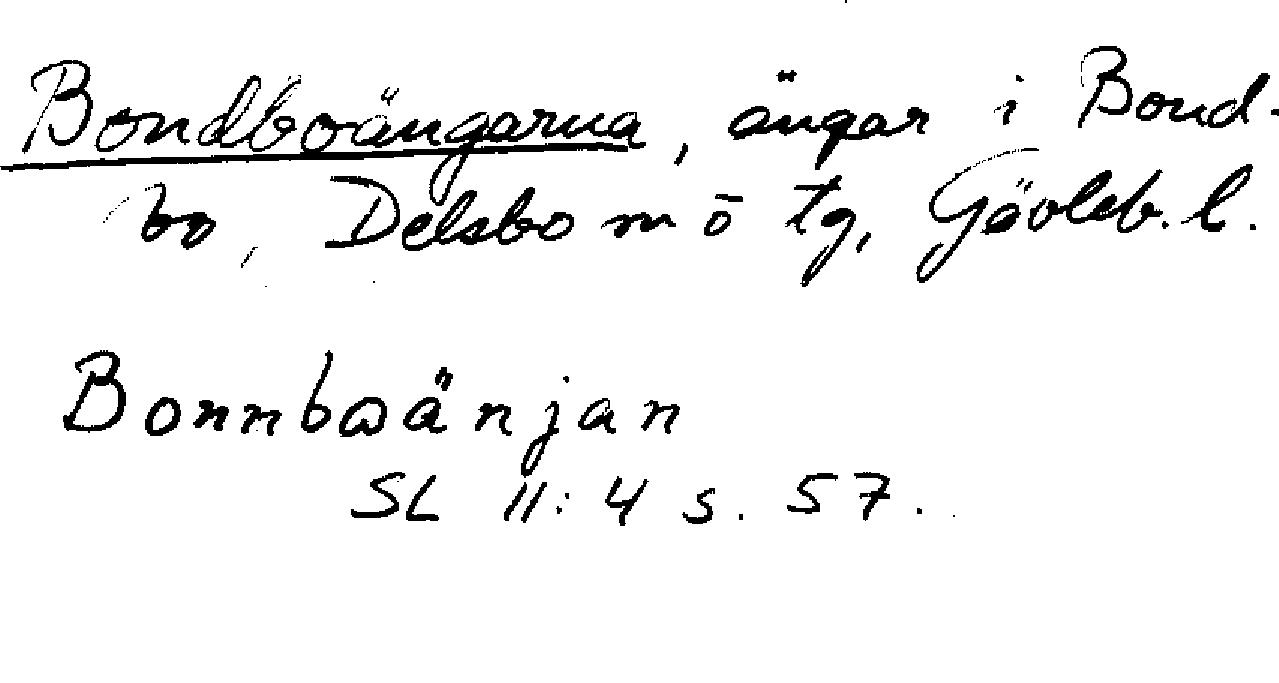 Bondboängarna, ängar i Bond-
bo, Delsbo m ō tg, Gävleb. l.
Bonnbωänjan
SL 11:4 s. 57.